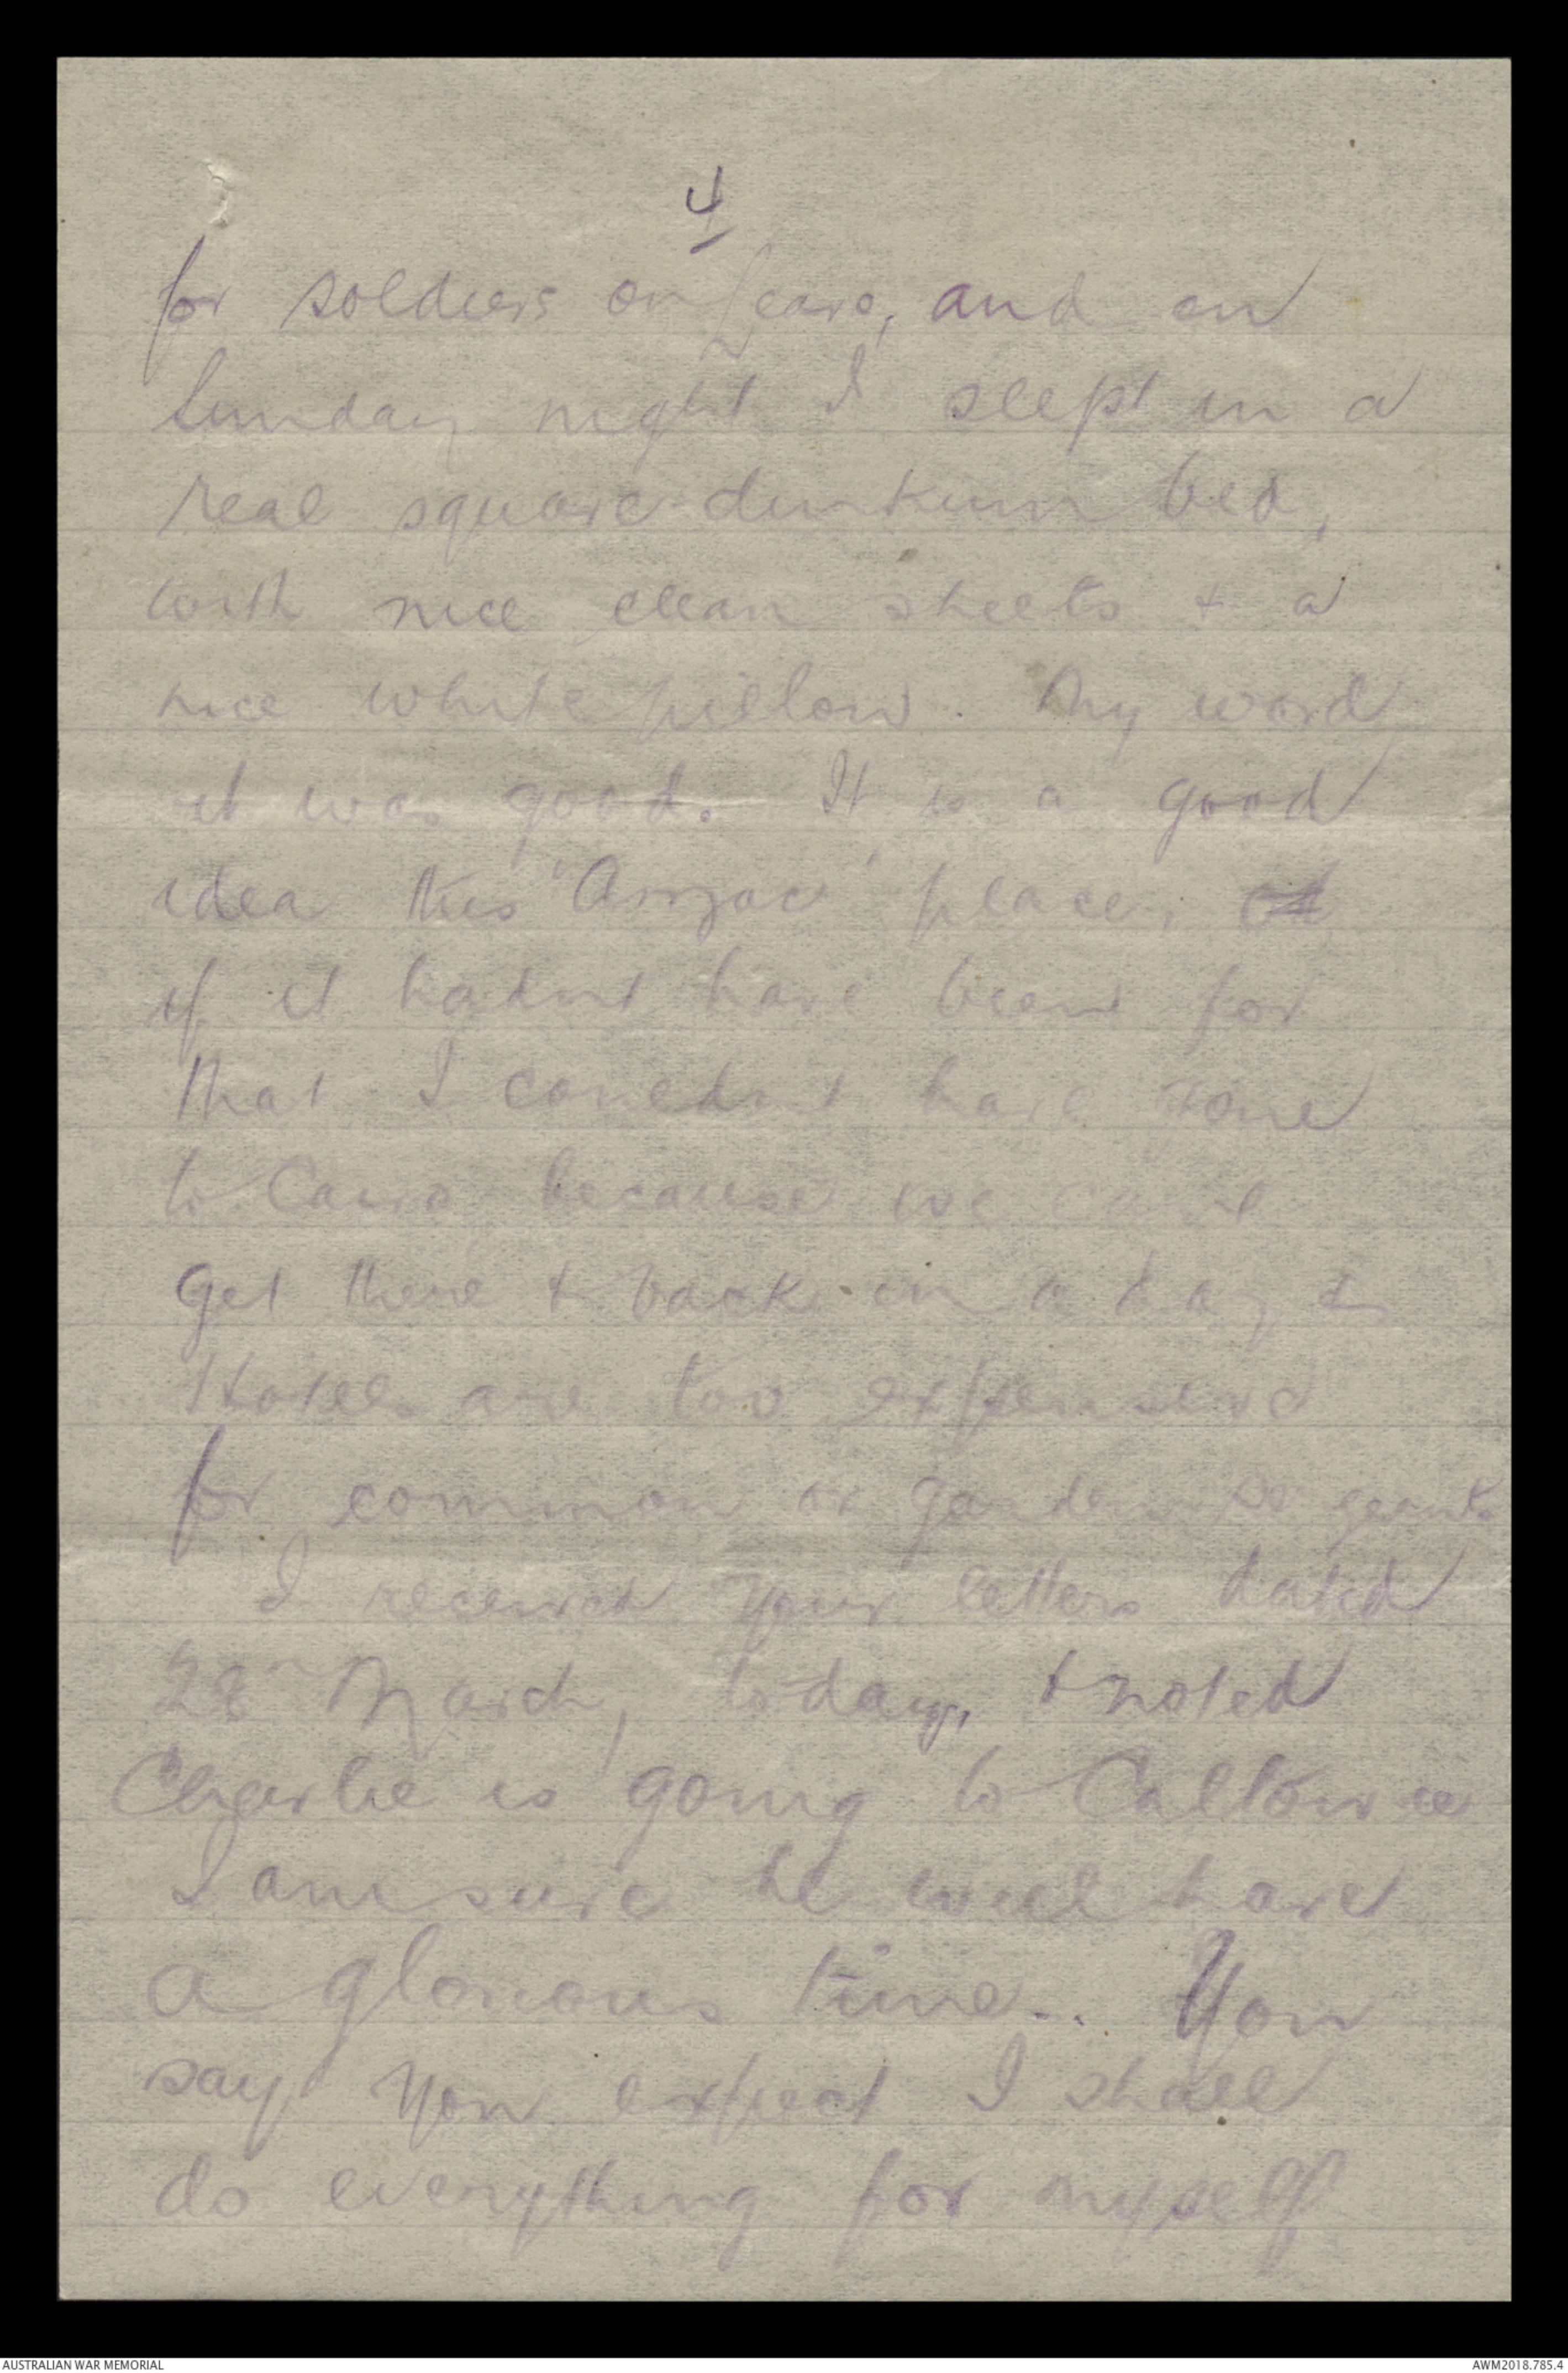 4
for soldiers on leave, and on
Sunday night I slept in a
real square-dinkum bed,
with nice clean sheets & a
nice white pillow. My word
it was good. It is a good
idea this "Anzac" place,
if it hadnt have been for
that I couldnt have gone
to Cairo because we
get there & back in a day &
Hotels are too expensive
for common or garden sergeants
I received your letters dated
28th March, to-day, & noted
Charlie is going to Caltowie
I am sure he will have
a glorious time.. You
say you expect I shall
do everything for myself
AUSTRALIAN WAR MEMORIAL
AWM2018.785.4